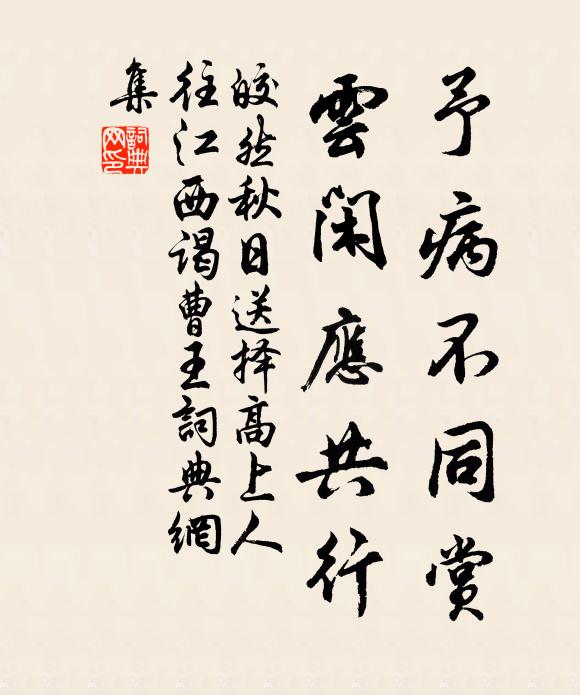 予病不同賞
雲閑應共行
皎然秋日送择高上人
往江西謁曹王詞典網
集
詞典網印